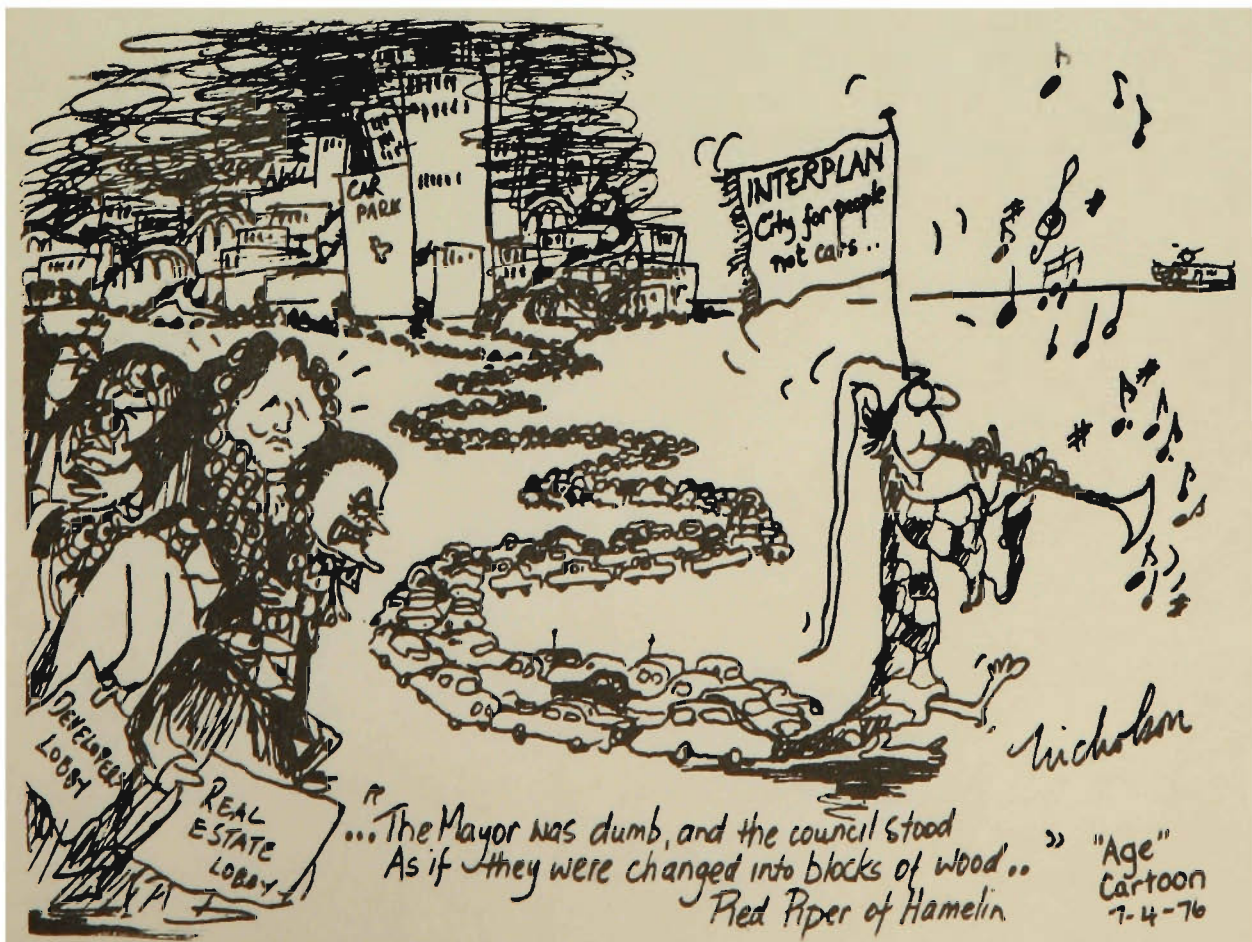 CAR
PARK
INTERPLAN
City for people
not cars..
DEVELOPERS
LOBBY
REAL
ESTATE
LOBBY
"...The Mayor was dumb, and the council stood
As if they were changed into blocks of wood.."
Pied Piper of Hamelin
Nicholson
"Age"
Cartoon
7-4-76